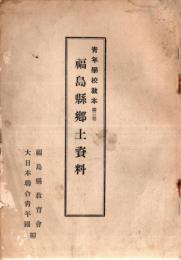 青年學校教本 第三卷
福島縣鄉土資料
福島縣教育會
大日本聯合青年團 編